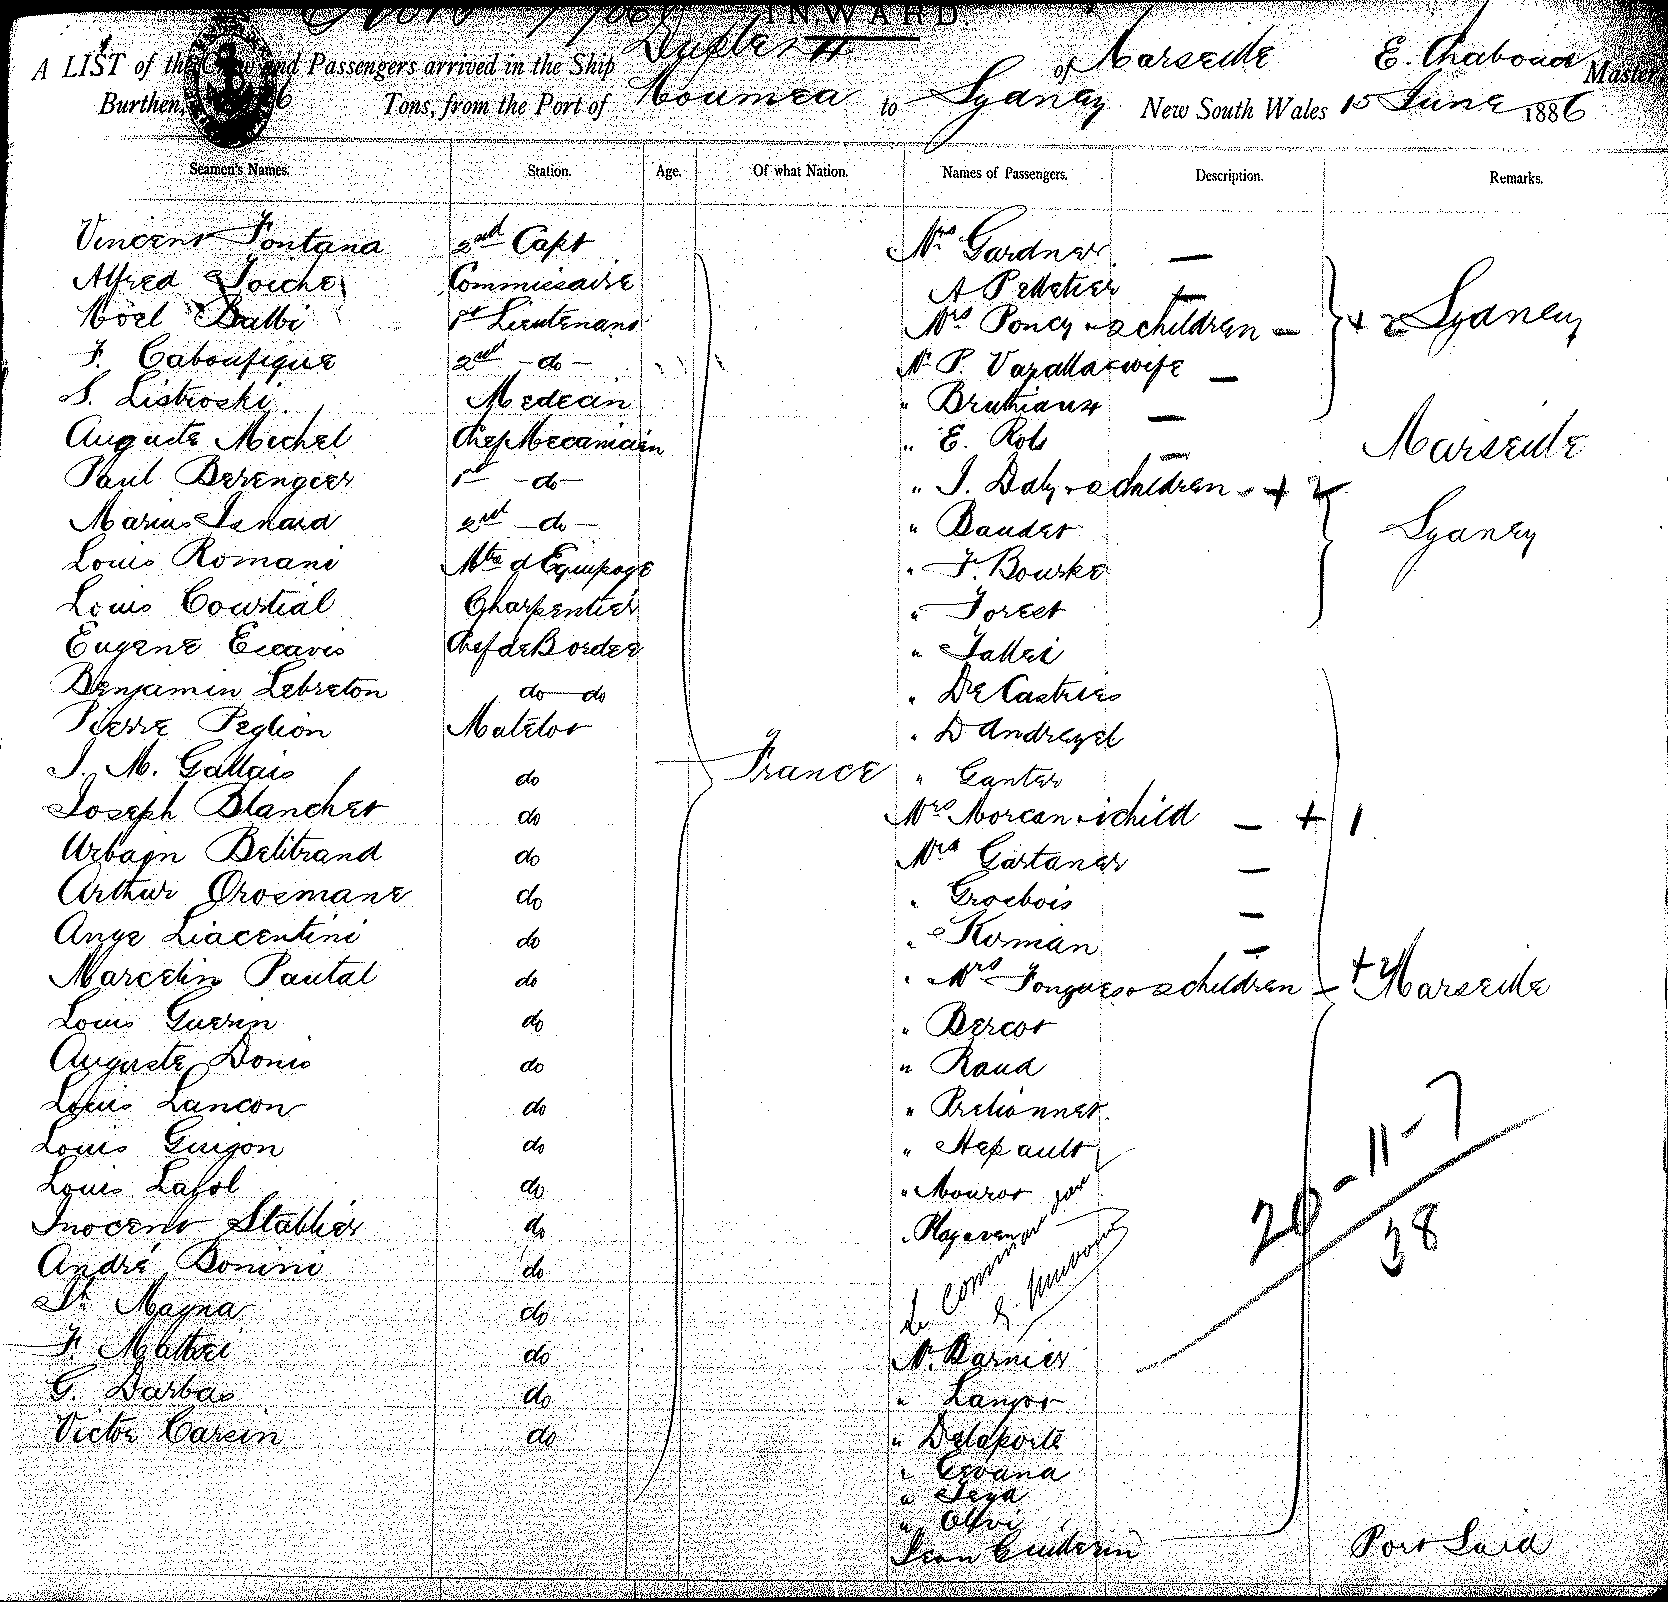 INWARD
A LIST of the Crew and Passengers arrived in the Ship Dupleix of Marseille E. Chabaud Master
Burthen, Tons, from the Port of Noumea to Sydney New South Wales 15 June 1886
Seamen's Names. Station. Age. Of what Nation. Names of Passengers. Description. Remarks.
Vincent Fontana 2nd Capt Mrs Gardner —
Alfred Commissaire A Pelletier —
Noel Balbi 1st Lieutenant Mrs Poncy & 2 children — + 2 Sydney
F. 2nd — do — Mr P. & wife —
S. Listroski Medecin " Bruthiaux —
Auguste Michel Chef Mecanicien " E. Rob — Marseille
Paul Berenger 1st — do — " J. Daly & 2 children - + 2
Marius Isnard 2nd — do — " Baudet Sydney
Louis Romani Mtre d Equipage " F. Bourke
Louis Courtial Charpentier " Forest
Eugene Escavis Chef de Bordee
Benjamin Lebreton do — do " De Castries
Pierre Peglion Matelot
J. M. Gallais do France " Ganter
Joseph Blanchet do Mrs Morcan & 1 child — + 1
Urbain Belitrand do Mrs Gartaner —
Arthur Orosmane do " Grosbois —
Ange Liacentini do " Roman —
Marcelin Pautal do " Mrs & 2 children — + 2 Marseille
Louis Guerin do " Bercot
Auguste Donis do " Raud
Louis Lancon do
Louis Guigon do " Hepault
Louis Lafol do " Mourot
Inocent Stablier do
André Bonini do
Magna do
F. Mattei do Mr. Barnier
G. Darbas do " Lanjot
Victor Carsin do " Delaporte
" Gervana
" Olivi
Jean Port Said
20 - 11 - 7
38